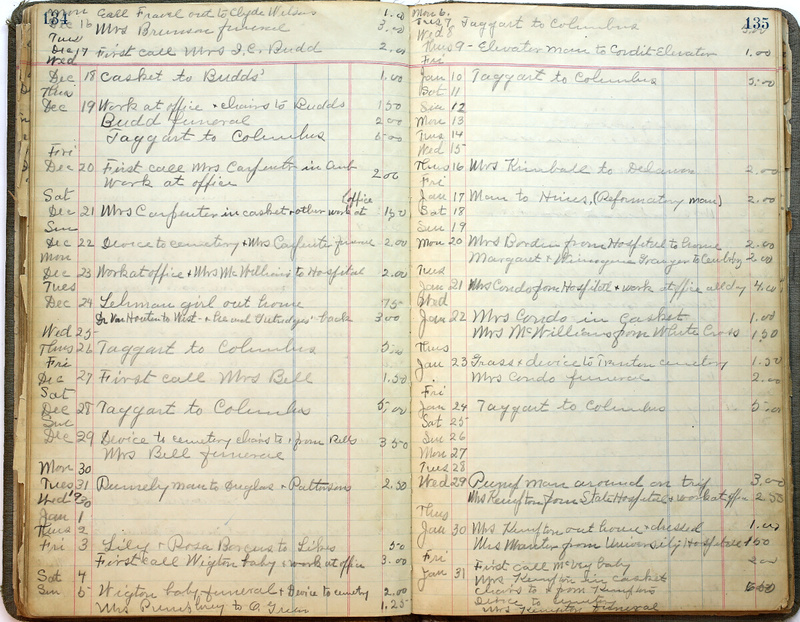 134
Mon Call Travel out to Clyde 1.00
Dec 16 Mrs Brunson funeral 3.50
Tues
Dec 17 First call Mrs I.C. Budd 2.00
Wed
Dec 18 Casket to Budds' 1.00
Thus
Dec 19 Work at office + chairs to Budds 1 50
Budd funeral 2 00
Taggart to Columbus 5 00
Fri
Dec 20 First call Mrs Carpenter in Amb 2.00
Work at office
Sat
Dec 21 Mrs Carpenter in casket + other work at office 1 50
Sun
Dec 22 Device to cemetery + Mrs Carpenter funeral 2.00
Mon
Dec 23 Work at office + Mrs McWilliams to Hospital 2.00
Tues
Dec 24 Lehman girl out home 75
Dr Van Houten to West- + back 3 00
Wed 25
Thus 26 Taggart to Columbus 5.00
Fri
Dec 27 First call Mrs Bell 1.50
Sat
Dec 28 Taggart to Columbus 5.00
Sun
Dec 29 Device to cemetery chairs to + from Bells 3 50
Mrs Bell funeral
Mon 30
Tues 31 man to + Patterson 2.50
Wed 1930
Jan 1
Thus 2
Fri 3 Lily + Rosa to 50
First call Wigton baby + work at office 3.00
Sat 4
Sun 5 Wigton baby funeral + Device to cemetery 2.00
Mrs to 1.25
135
Mon 6.
Tues 7 Taggart to Columbus 5.00
Wed 8
Thus 9 - Elevator man to Condit Elevator 1.00
Fri
Jan 10 Taggart to Columbus 5.00
Sat 11
Sun 12
Mon 13
Tues 14
Wed 15
Thus 16 Mrs Kimball to Delaware 2.00
Fri
Jan 17 Man to Hines, (Reformatory man) 2.00
Sat 18
Sun 19
Mon 20 Mrs Borden from Hospital to home 2.00
Margaret + Granger to 2.00
Tues
Jan 21 Mrs Condo from Hospital + work at office all day 4.00
Wed
Jan 22 Mrs Condo in casket 1.00
Mrs McWilliams from White Cross 1.50
Thus
Jan 23 Grass + device to Trenton cemetery 1.50
Mrs Condo funeral 2.00
Fri
Jan 24 Taggart to Columbus 5.00
Sat 25
Sun 26
Mon 27
Tues 28
Wed 29 Pump man around on trip 3.00
Mrs Kempton from State Hospital + work at office 2.50
Thus
Jan 30 Mrs Kempton out home + dressed 1.00
Mrs from University Hospital 1 50
Fri
Jan 31 First call baby 2.00
Mrs Kempton in casket
chairs to + from Kempton
Device to cemetery
Mrs Kempton Funeral